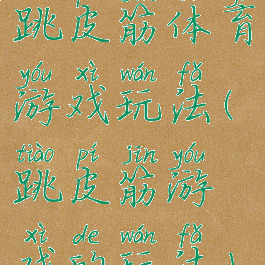 跳皮筋体育
yóu xì wán fǎ
游戏玩法(
tiào pí jīn yóu
跳皮筋游
xì de wán fǎ
戏的玩法)